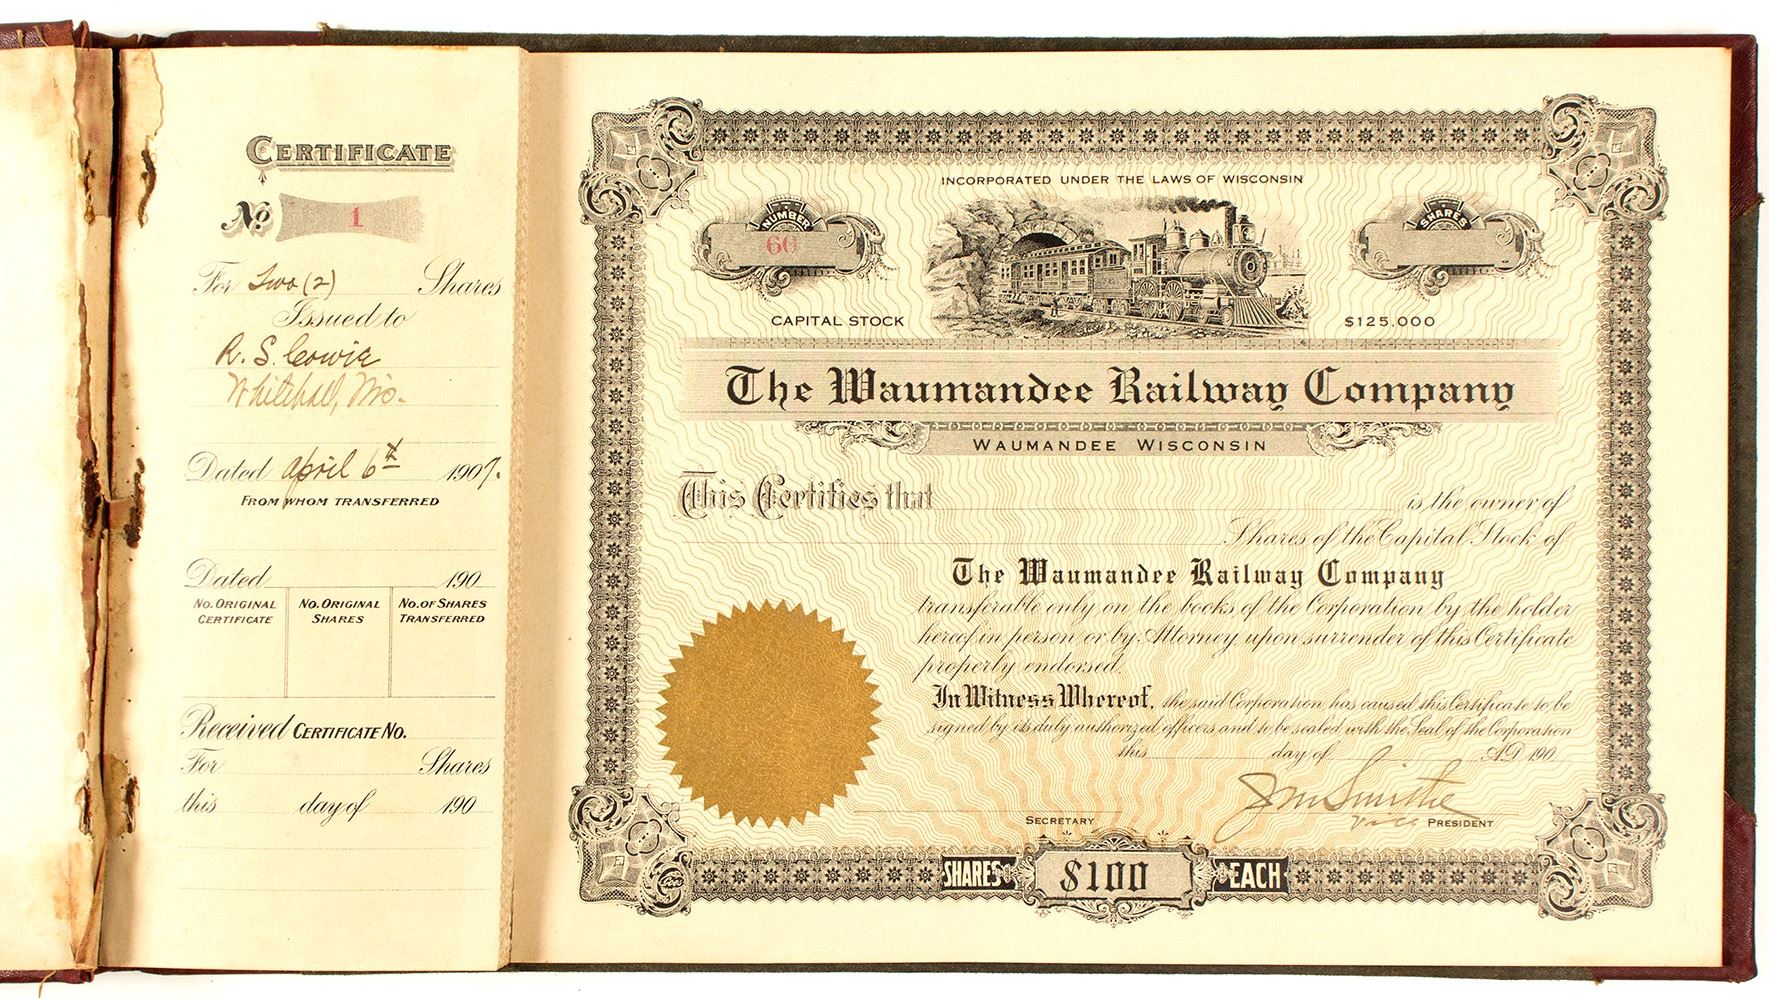 CERTIFICATE
No. 1
For Two (2) Shares
Issued to
R. S. Cowie
Whitehall, Wis.
Dated April 6th 1907.
FROM WHOM TRANSFERRED
Dated 190
NO. ORIGINAL CERTIFICATE
NO. ORIGINAL SHARES
NO. OF SHARES TRANSFERRED
Received CERTIFICATE NO.
For Shares
this day of 190
INCORPORATED UNDER THE LAWS OF WISCONSIN
NUMBER
60
SHARES
CAPITAL STOCK $125.000
The Waumandee Railway Company
WAUMANDEE WISCONSIN
This Certifies that is the owner of
Shares of the Capital Stock of
The Waumandee Railway Company
transferable only on the books of the Corporation by the holder
hereof in person or by Attorney, upon surrender of this Certificate
properly endorsed.
In Witness Whereof, the said Corporation has caused this Certificate to be
signed by its duly authorized officers and to be sealed with the Seal of the Corporation
this day of A.D. 190
SECRETARY
Vice PRESIDENT
SHARES $100 EACH